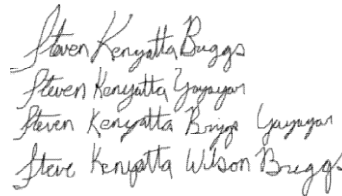 Steven Kenyatta Buggs
Steven Kenyatta Yayayar
Steven Kenyatta Briggs Yayayar
Steve Kenyatta Wilson Buggs